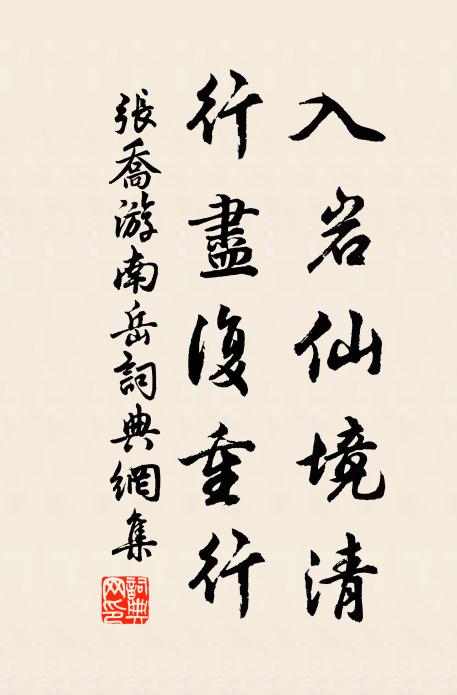 入岩仙境清
行盡復重行
張喬游南岳詞典網集
詞典網印